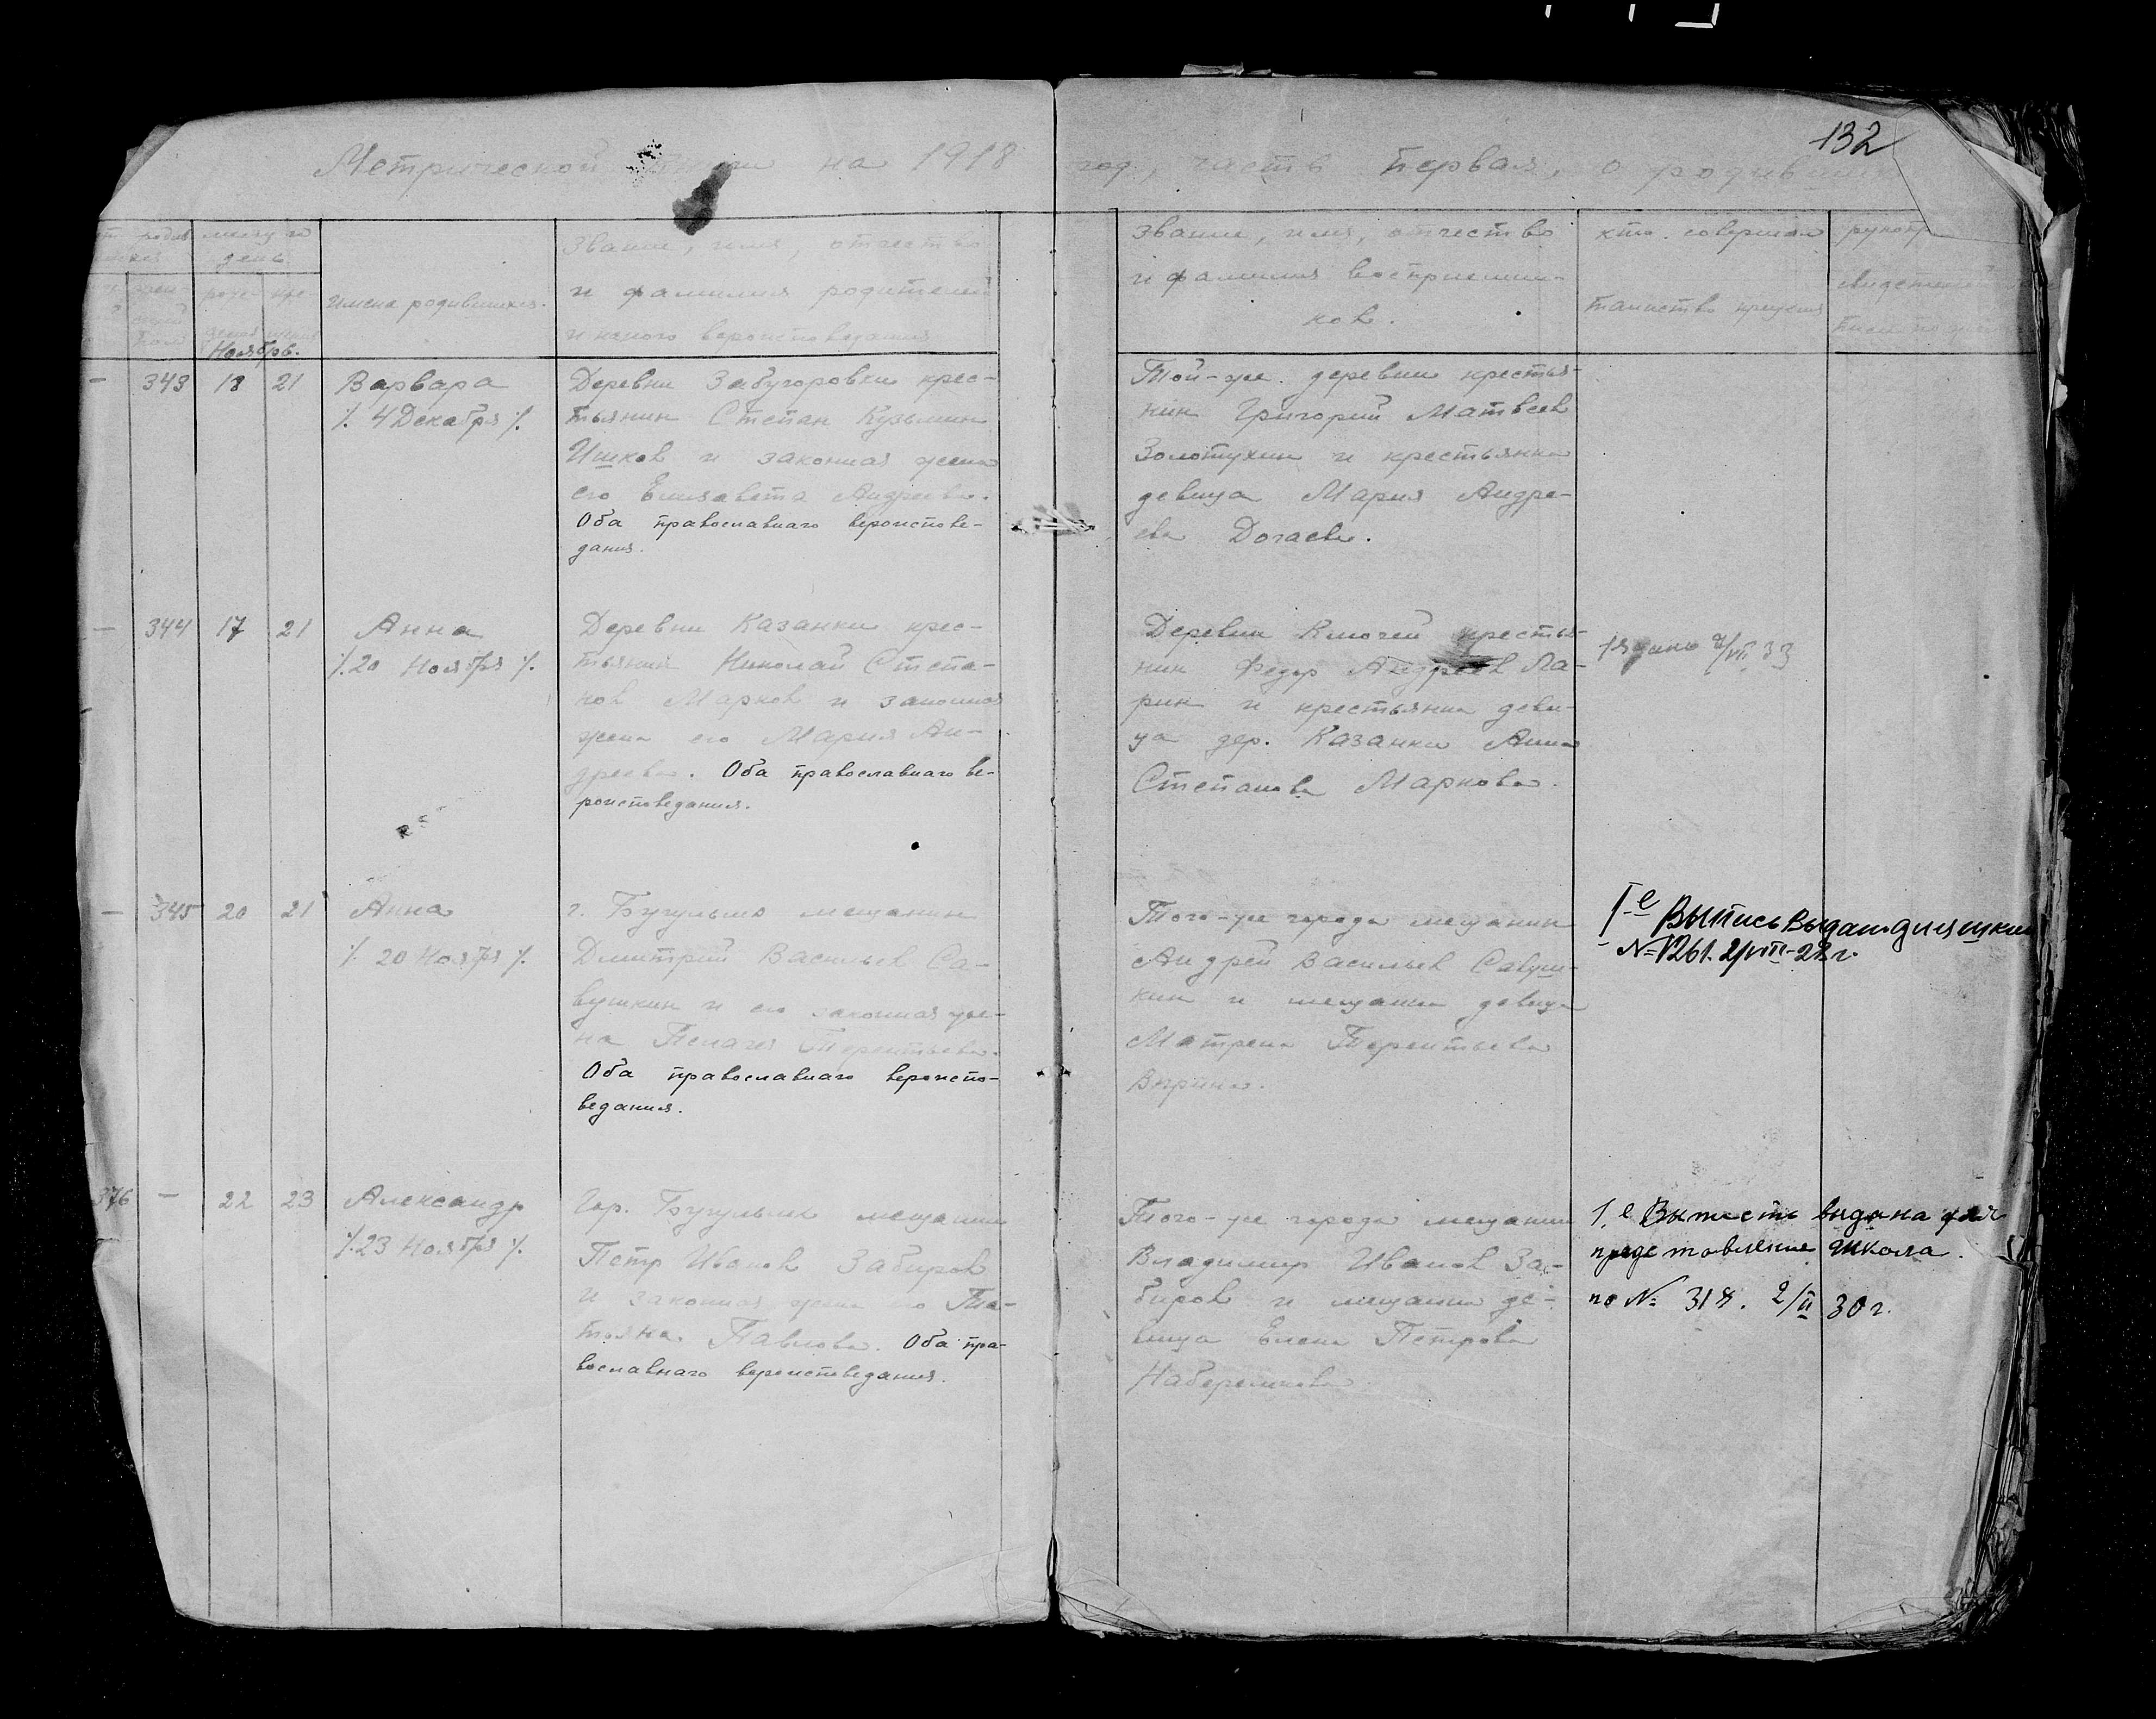 132
Метрической книги на 1918 год, часть первая, о родивш
месяц и
день.
Ноябрь.
имена родившихся.
Звание, имя, отчество
и фамилия родителей
и какого вероисповедания
Звание, имя, отчество
и фамилия восприемни-
ков.
кто совершал
таинство крещения
— 343 18 21
Варвара
⁒ 4 Декабря ⁒
Деревни Забугоровки крес-
тьянин Степан Кузьмин
Ишков и законная жена
его Елизавета Андреева.
Оба православнаго вероиспове-
дания.
Той-же деревни крестья-
нин Григорий Матвеев
Золотухин и крестьянка
девица Мария Андре-
ева Догаева.
— 344 17 21
Анна
⁒ 20 Ноября ⁒
Деревни Казанки крес-
тьянин Николай Степа-
нов Марков и законная
жена его Мария Ан-
дреева. Оба православнаго ве-
роисповедания.
Деревни Ключей крестья-
нин Федор Андреев Ла-
рин и крестьянка деви-
ца дер. Казанки Анна
Степанова Маркова.
33
— 345 20 21
Анна
⁒ 20 Ноября ⁒
г. Бугульмы мещанин
Дмитрий Васильев Са-
вушкин и его законная же-
на Пелагея Терентьева.
Оба православнаго вероиспо-
ведания.
Того-же города мещанин
Андрей Васильев Савуш-
кин и мещанка девица
Матрена Терентьева
I-е Выпись выдана для школы
№ 1261. 2/VIII-28 г.
376 — 22 23
Александр
⁒ 23 Ноября ⁒
Гор. Бугульмы мещанин
Петр Иванов Забиров
и законная жена его Та-
тьяна Павлова. Оба пра-
вославнаго вероисповедания.
Того-же города мещанин
Владимир Иванов За-
биров и мещанка де-
вица Елена Петрова
1.е Выпись выдана для
представления школа.
по № 318. 2/II 30 г.